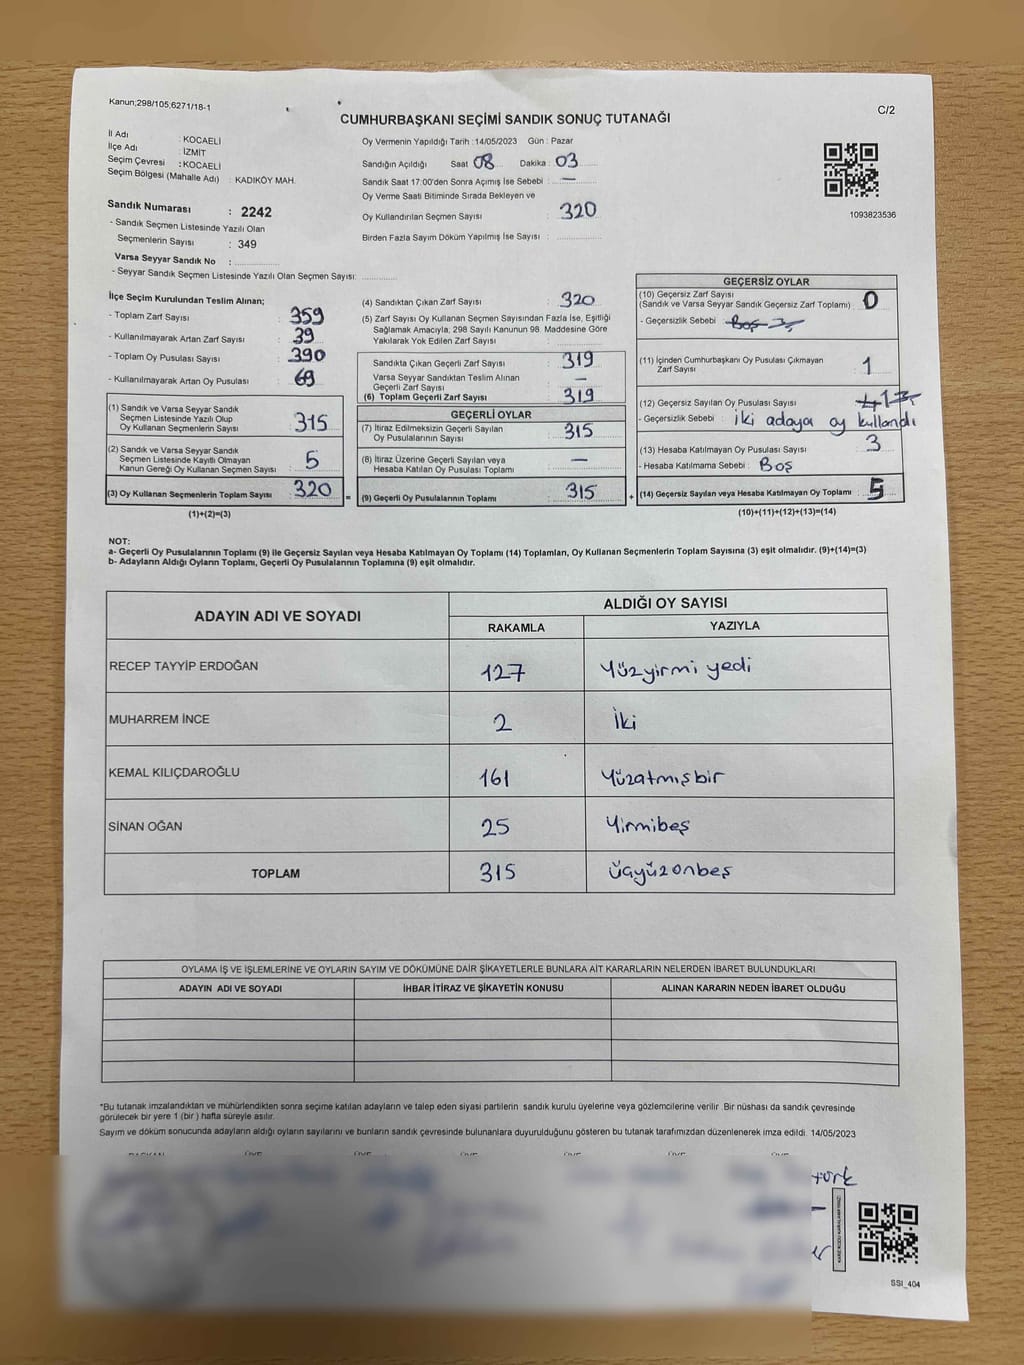 Kanun;298/105;6271/18-1
C/2
CUMHURBAŞKANI SEÇİMİ SANDIK SONUÇ TUTANAĞI
İl Adı : KOCAELİ
İlçe Adı : İZMİT
Seçim Çevresi : KOCAELİ
Seçim Bölgesi (Mahalle Adı) : KADIKÖY MAH.
Sandık Numarası : 2242
- Sandık Seçmen Listesinde Yazılı Olan
Seçmenlerin Sayısı : 349
Varsa Seyyar Sandık No :
- Seyyar Sandık Seçmen Listesinde Yazılı Olan Seçmen Sayısı:
Oy Vermenin Yapıldığı Tarih : 14/05/2023 Gün : Pazar
Sandığın Açıldığı Saat 08 Dakika : 03
Sandık Saat 17:00'den Sonra Açımış İse Sebebi : —
Oy Verme Saati Bitiminde Sırada Bekleyen ve
Oy Kullandırılan Seçmen Sayısı : 320
Birden Fazla Sayım Döküm Yapılmış İse Sayısı :
1093823536
İlçe Seçim Kurulundan Teslim Alınan;
- Toplam Zarf Sayısı : 359
- Kullanılmayarak Artan Zarf Sayısı : 39
- Toplam Oy Pusulası Sayısı : 390
- Kullanılmayarak Artan Oy Pusulası : 69
(1) Sandık ve Varsa Seyyar Sandık
Seçmen Listesinde Yazılı Olup
Oy Kullanan Seçmenlerin Sayısı : 315
(2) Sandık ve Varsa Seyyar Sandık
Seçmen Listesinde Kayıtlı Olmayan
Kanun Gereği Oy Kullanan Seçmen Sayısı : 5
(3) Oy Kullanan Seçmenlerin Toplam Sayısı : 320 =
(1)+(2)=(3)
(4) Sandıktan Çıkan Zarf Sayısı : 320
(5) Zarf Sayısı Oy Kullanan Seçmen Sayısından Fazla İse, Eşitliği
Sağlamak Amacıyla, 298 Sayılı Kanunun 98. Maddesine Göre
Yakılarak Yok Edilen Zarf Sayısı :
Sandıkta Çıkan Geçerli Zarf Sayısı : 319
Varsa Seyyar Sandıktan Teslim Alınan
Geçerli Zarf Sayısı : —
(6) Toplam Geçerli Zarf Sayısı : 319
GEÇERLİ OYLAR
(7) İtiraz Edilmeksizin Geçerli Sayılan
Oy Pusulalarının Sayısı : 315
(8) İtiraz Üzerine Geçerli Sayılan veya
Hesaba Katılan Oy Pusulası Toplamı : —
(9) Geçerli Oy Pusulalarının Toplamı : 315 +
GEÇERSİZ OYLAR
(10) Geçersiz Zarf Sayısı
(Sandık ve Varsa Seyyar Sandık Geçersiz Zarf Toplamı) : 0
- Geçersizlik Sebebi : Boş
(11) İçinden Cumhurbaşkanı Oy Pusulası Çıkmayan
Zarf Sayısı : 1
(12) Geçersiz Sayılan Oy Pusulası Sayısı
- Geçersizlik Sebebi : İki adaya oy kullandı
(13) Hesaba Katılmayan Oy Pusulası Sayısı : 3
- Hesaba Katılmama Sebebi : Boş
(14) Geçersiz Sayılan veya Hesaba Katılmayan Oy Toplamı : 5
(10)+(11)+(12)+(13)=(14)
NOT:
a- Geçerli Oy Pusulalarının Toplamı (9) ile Geçersiz Sayılan veya Hesaba Katılmayan Oy Toplamı (14) Toplamları, Oy Kullanan Seçmenlerin Toplam Sayısına (3) eşit olmalıdır. (9)+(14)=(3)
b- Adayların Aldığı Oyların Toplamı, Geçerli Oy Pusulalarının Toplamına (9) eşit olmalıdır.
ADAYIN ADI VE SOYADI
ALDIĞI OY SAYISI
RAKAMLA YAZIYLA
RECEP TAYYİP ERDOĞAN 127 Yüzyirmi yedi
MUHARREM İNCE 2 İki
KEMAL KILIÇDAROĞLU 161 Yüzatmışbir
SİNAN OĞAN 25 Yirmibeş
TOPLAM 315 Üçyüzonbeş
OYLAMA İŞ VE İŞLEMLERİNE VE OYLARIN SAYIM VE DÖKÜMÜNE DAİR ŞİKAYETLERLE BUNLARA AİT KARARLARIN NELERDEN İBARET BULUNDUKLARI
ADAYIN ADI VE SOYADI İHBAR İTİRAZ VE ŞİKAYETİN KONUSU ALINAN KARARIN NEDEN İBARET OLDUĞU
*Bu tutanak imzalandıktan ve mühürlendikten sonra seçime katılan adayların ve talep eden siyasi partilerin sandık kurulu üyelerine veya gözlemcilerine verilir. Bir nüshası da sandık çevresinde
görülecek bir yere 1 (bir ) hafta süreyle asılır.
Sayım ve döküm sonucunda adayların aldığı oyların sayılarını ve bunların sandık çevresinde bulunanlara duyurulduğunu gösteren bu tutanak tarafımızdan düzenlenerek imza edildi. 14/05/2023
SSI_404